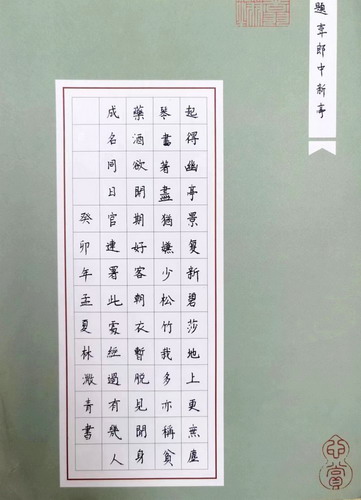 題李郎中新亭
起得幽亭景复新碧莎地上更無塵
琴書著盡猶嫌少松竹栽多亦稱貧
藥酒欲開期好客朝衣暫脫見閒身
成名同日官連署此處經過有幾人
癸卯年孟夏林青書